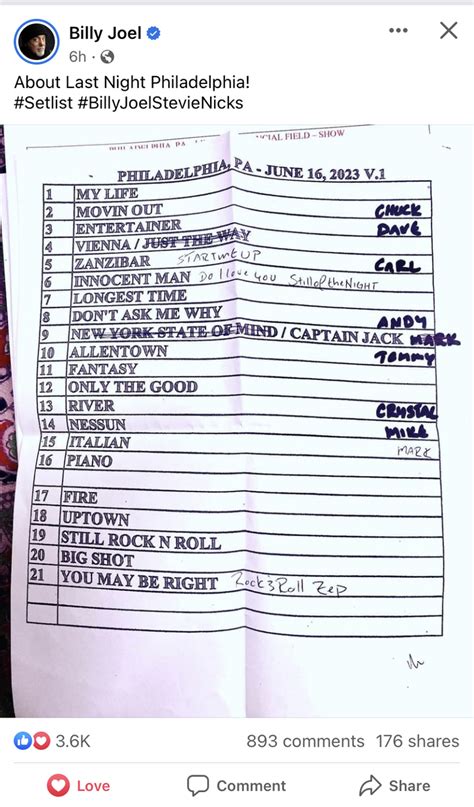 Billy Joel
6h
About Last Night Philadelphia!
#Setlist #BillyJoelStevieNicks
FIELD – SHOW
PHILADELPHIA, PA - JUNE 16, 2023 V.1
1 MY LIFE
2 MOVIN OUT CHUCK
3 ENTERTAINER DAVE
4 VIENNA / JUST THE WAY
5 ZANZIBAR START ME UP CARL
6 INNOCENT MAN Do I love you Still of the NIGHT
7 LONGEST TIME
8 DON'T ASK ME WHY ANDY
9 NEW YORK STATE OF MIND / CAPTAIN JACK MARK
10 ALLENTOWN TOMMY
11 FANTASY
12 ONLY THE GOOD
13 RIVER CRYSTAL
14 NESSUN MIKE
15 ITALIAN MARK
16 PIANO
17 FIRE
18 UPTOWN
19 STILL ROCK N ROLL
20 BIG SHOT
21 YOU MAY BE RIGHT Rock & Roll Zep
3.6K 893 comments 176 shares
Love Comment Share